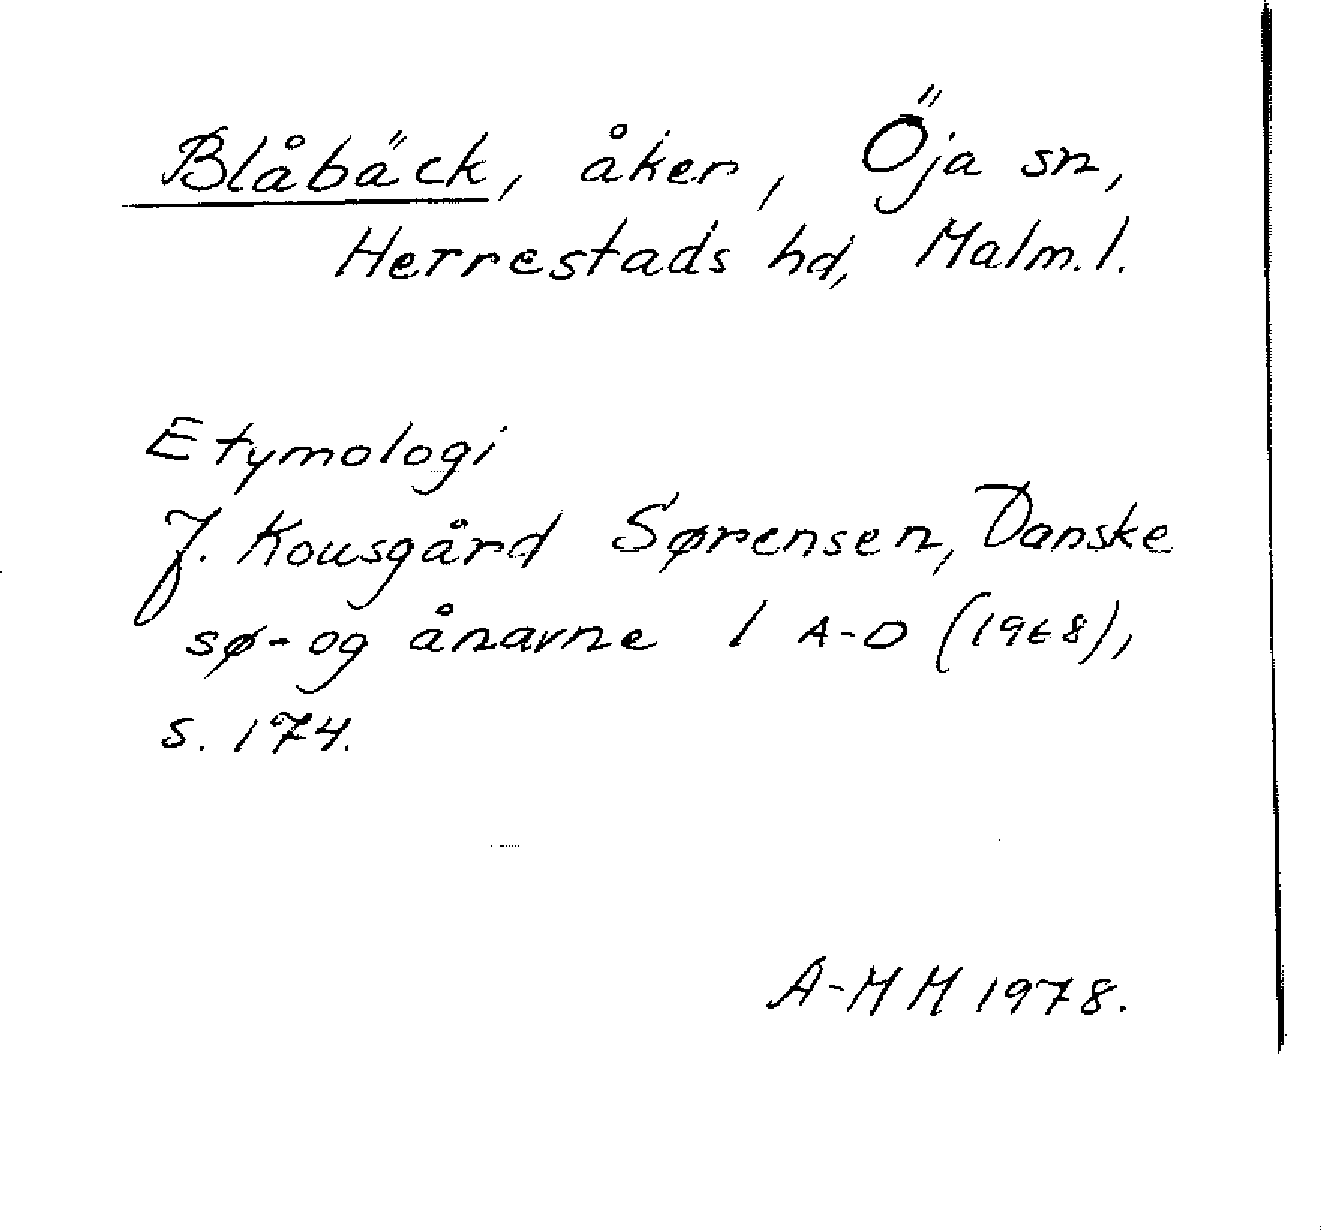 Blåbäck, åker, Öja sn,
Herrestads hd, Malm.l.
Etymologi
J. Kousgård Sørensen, Danske
sø- og ånavne I A-D (1968),
s. 174.
A-MM 1978.